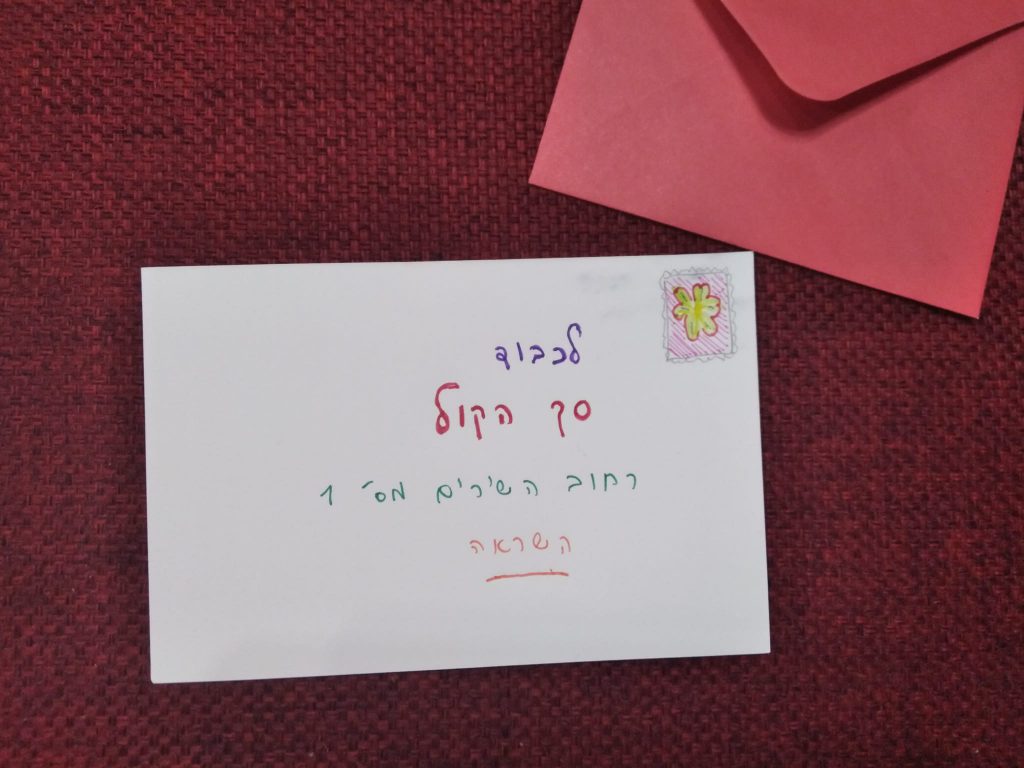 לכבוד
סך הקול
רחוב השירים מס׳ 1
השראה